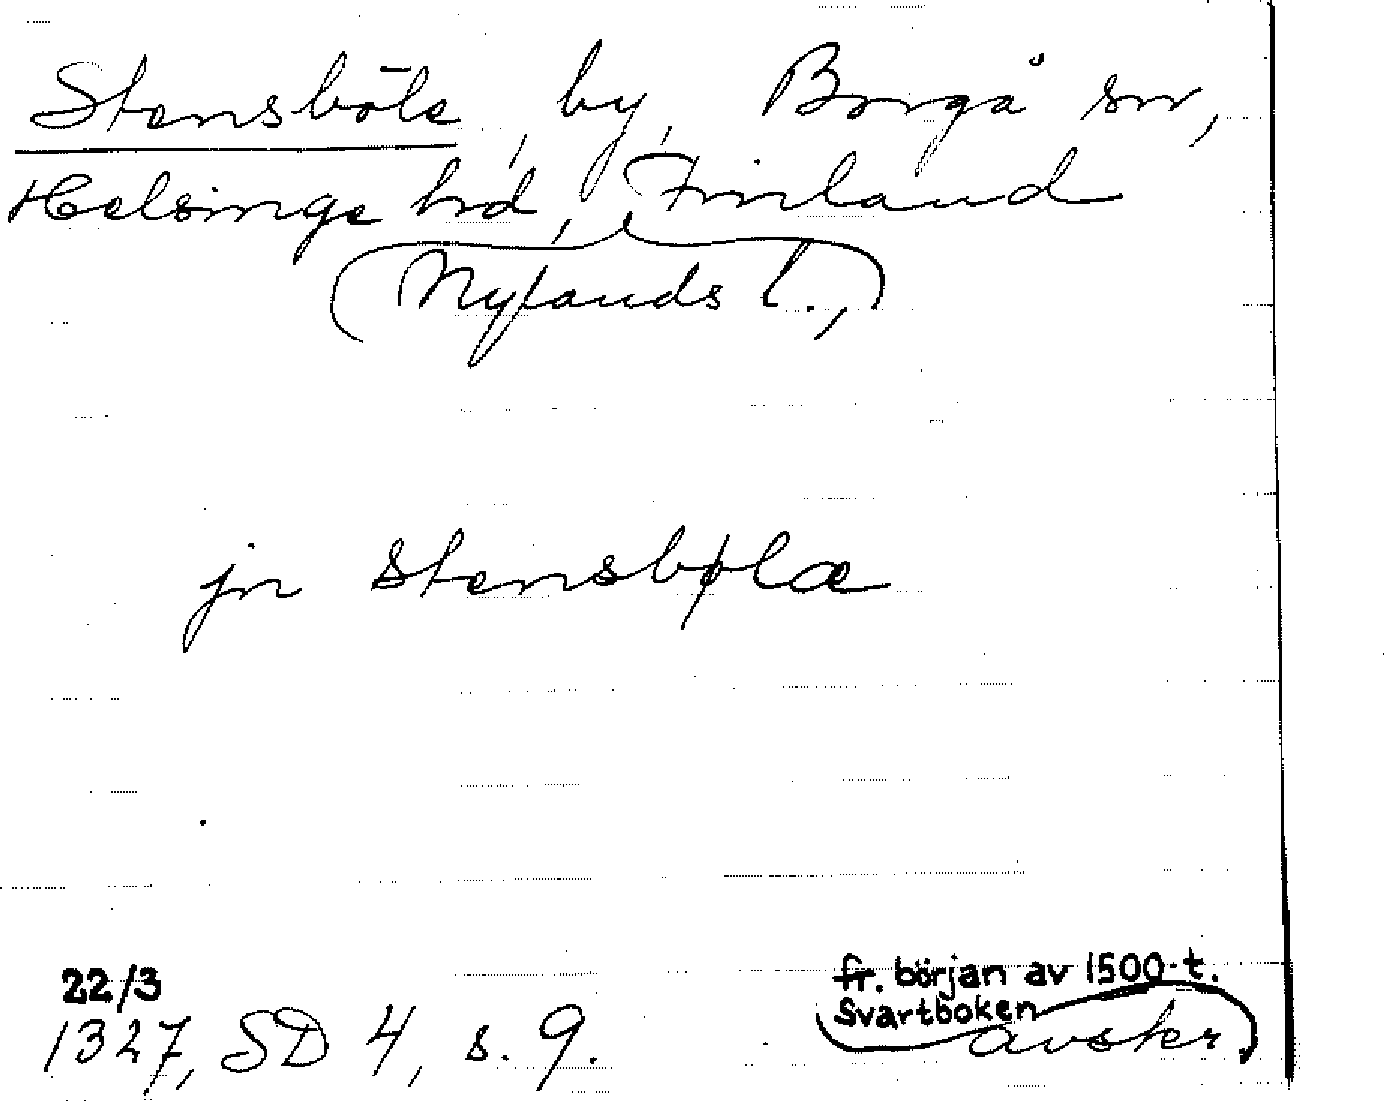 Stensböle, by, Borgå sn,
Helsinge hd, Finland
(Nylands l.,)
jn Stensbølæ
22/3 fr. början av 1500-t.
Svartboken avskr.
1327, SD 4, s. 9.